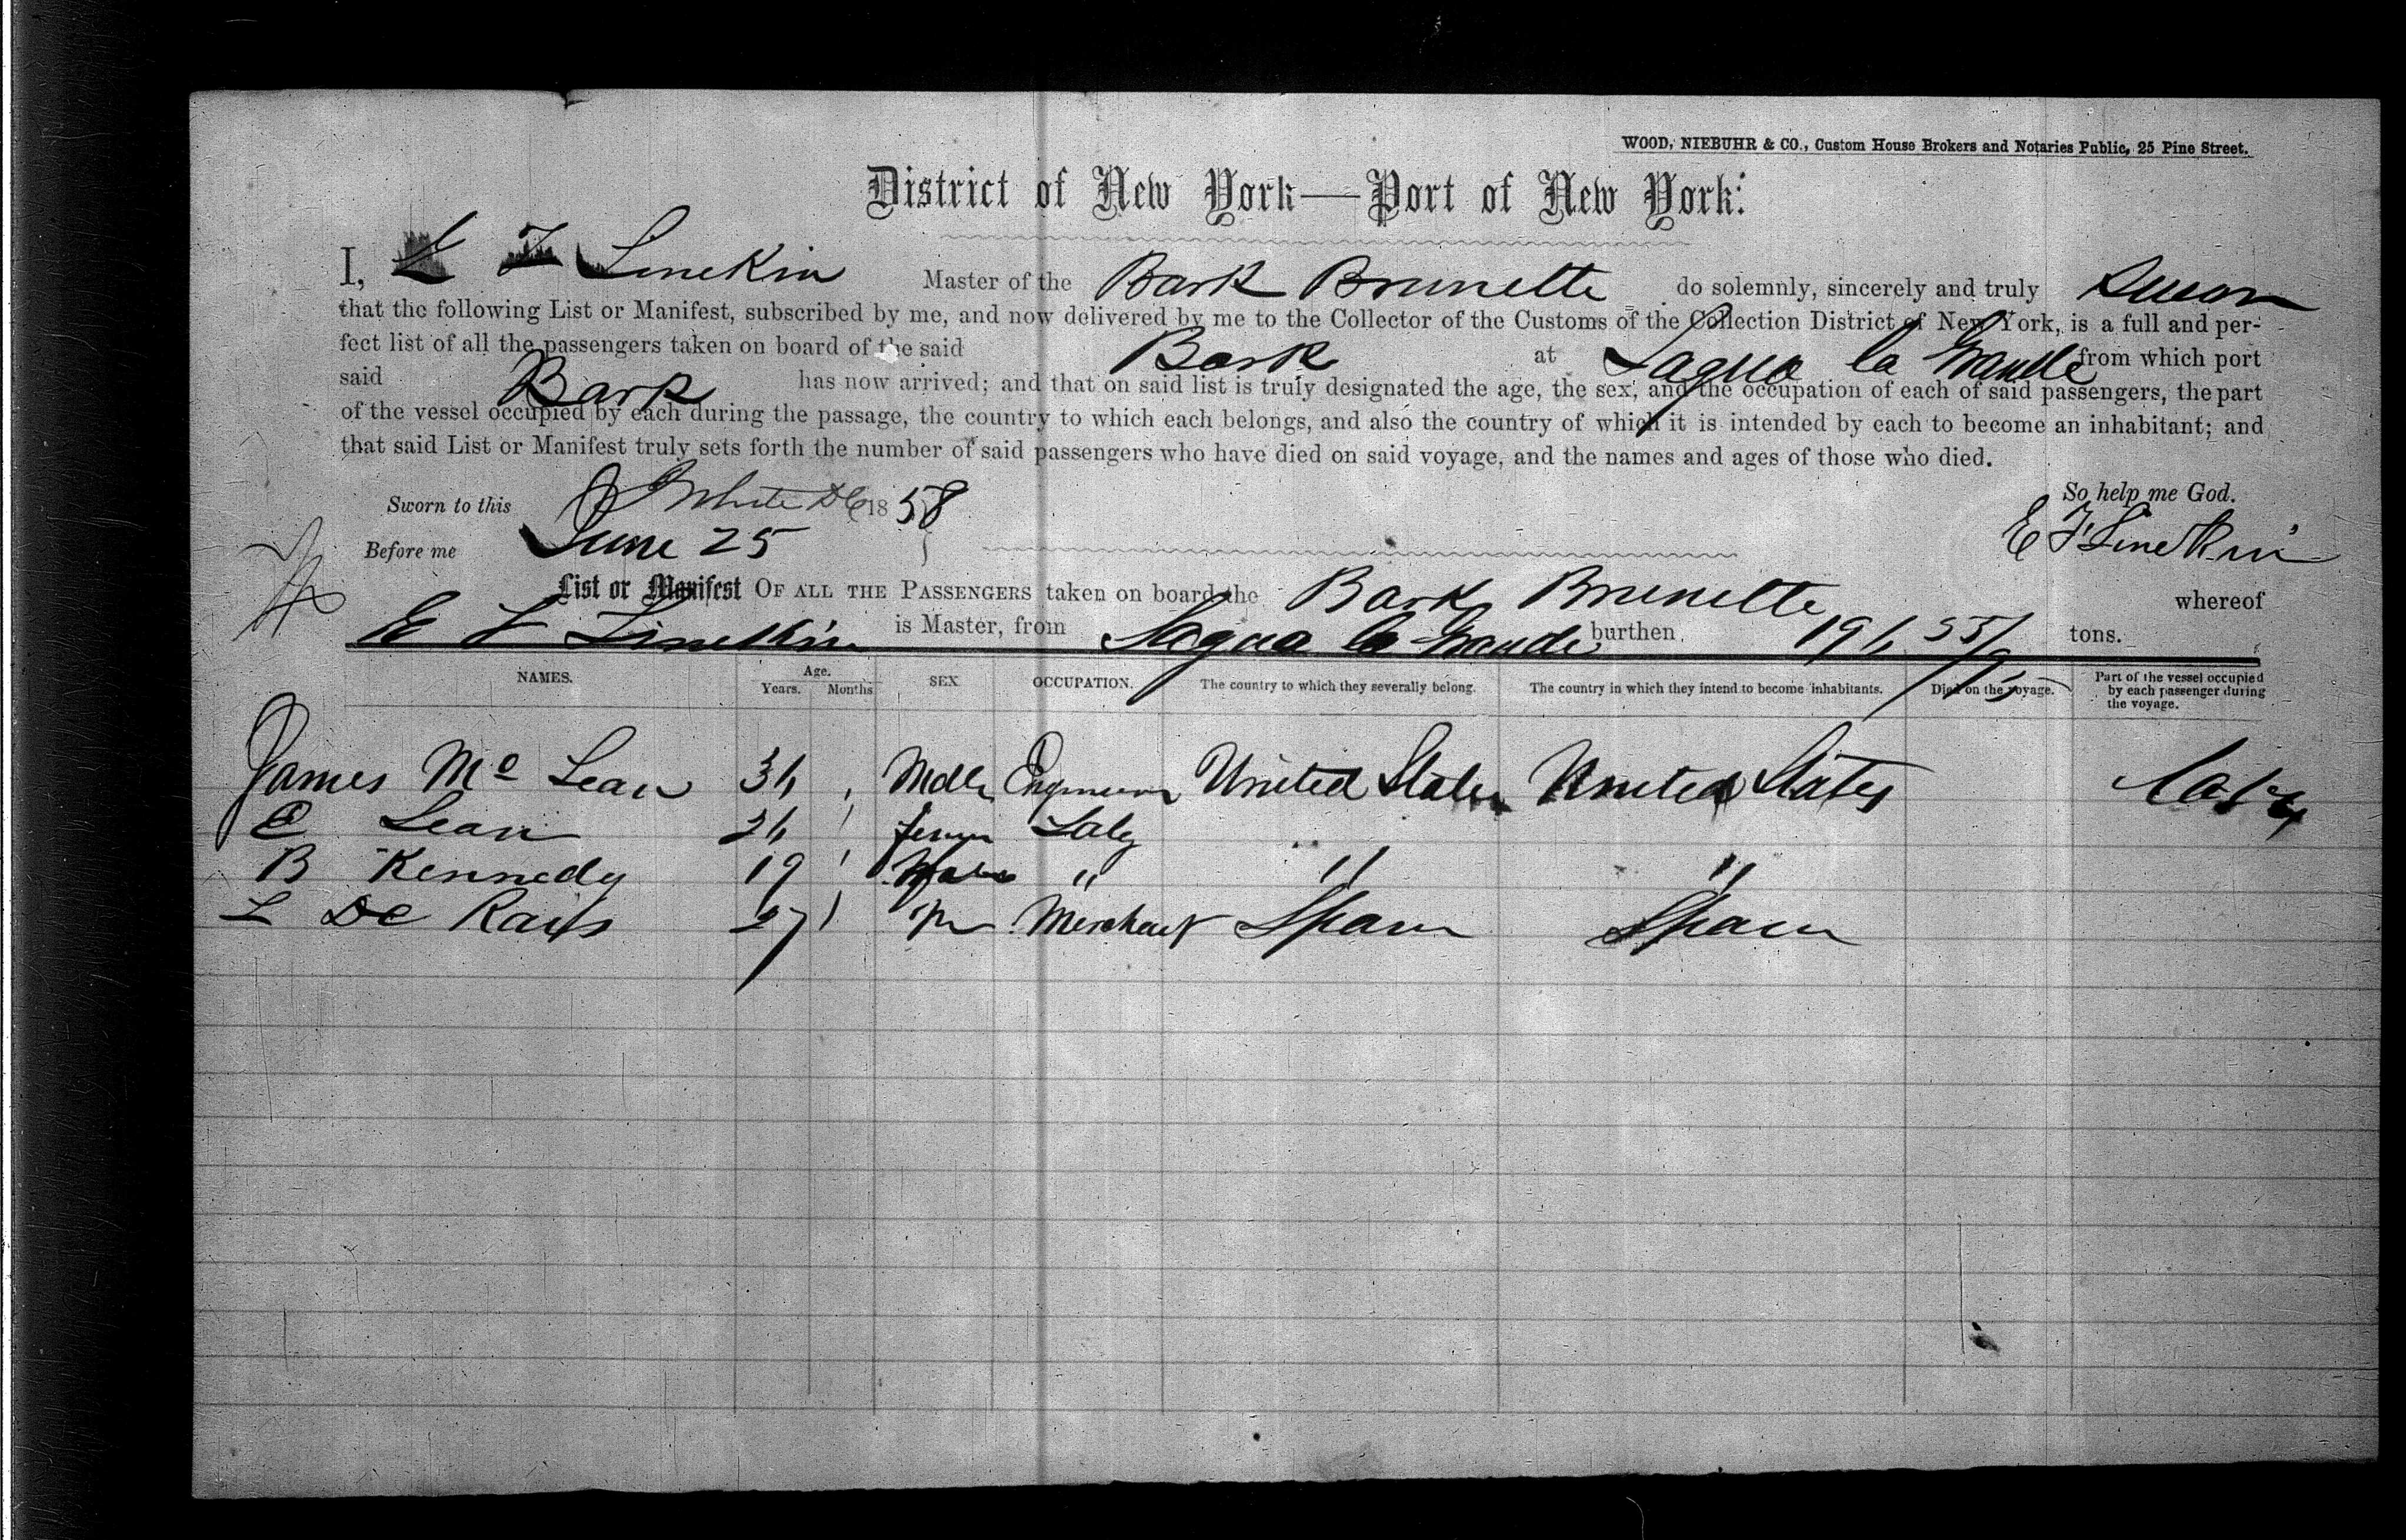 WOOD, NIEBUHR & CO., Custom House Brokers and Notaries Public, 25 Pine Street.
District of New York—Port of New York:
I, E F Linekin Master of the Bark Brunette do solemnly, sincerely and truly Swear
that the following List or Manifest, subscribed by me, and now delivered by me to the Collector of the Customs of the Collection District of New York, is a full and per-
fect list of all the passengers taken on board of the said Bark at Sagua la Grande from which port
said Bark has now arrived; and that on said list is truly designated the age, the sex, and the occupation of each of said passengers, the part
of the vessel occupied by each during the passage, the country to which each belongs, and also the country of which it is intended by each to become an inhabitant; and
that said List or Manifest truly sets forth the number of said passengers who have died on said voyage, and the names and ages of those who died.
So help me God.
Sworn to this 1858
Before me June 25
E F Linekin
List or Manifest OF ALL THE PASSENGERS taken on board the Bark Brunette whereof
E F Linekin is Master, from Sagua la Grande burthen 191 53/95 tons.
NAMES. Age. Years. Months SEX. OCCUPATION. The country to which they severally belong. The country in which they intend to become inhabitants. Died on the voyage. Part of the vessel occupied by each passenger during the voyage.
James Mc Lean Male Engineer United States United States
E Lean Lady
B Kennedy 19 Male " " "
L De 27 M Merchant Spain Spain